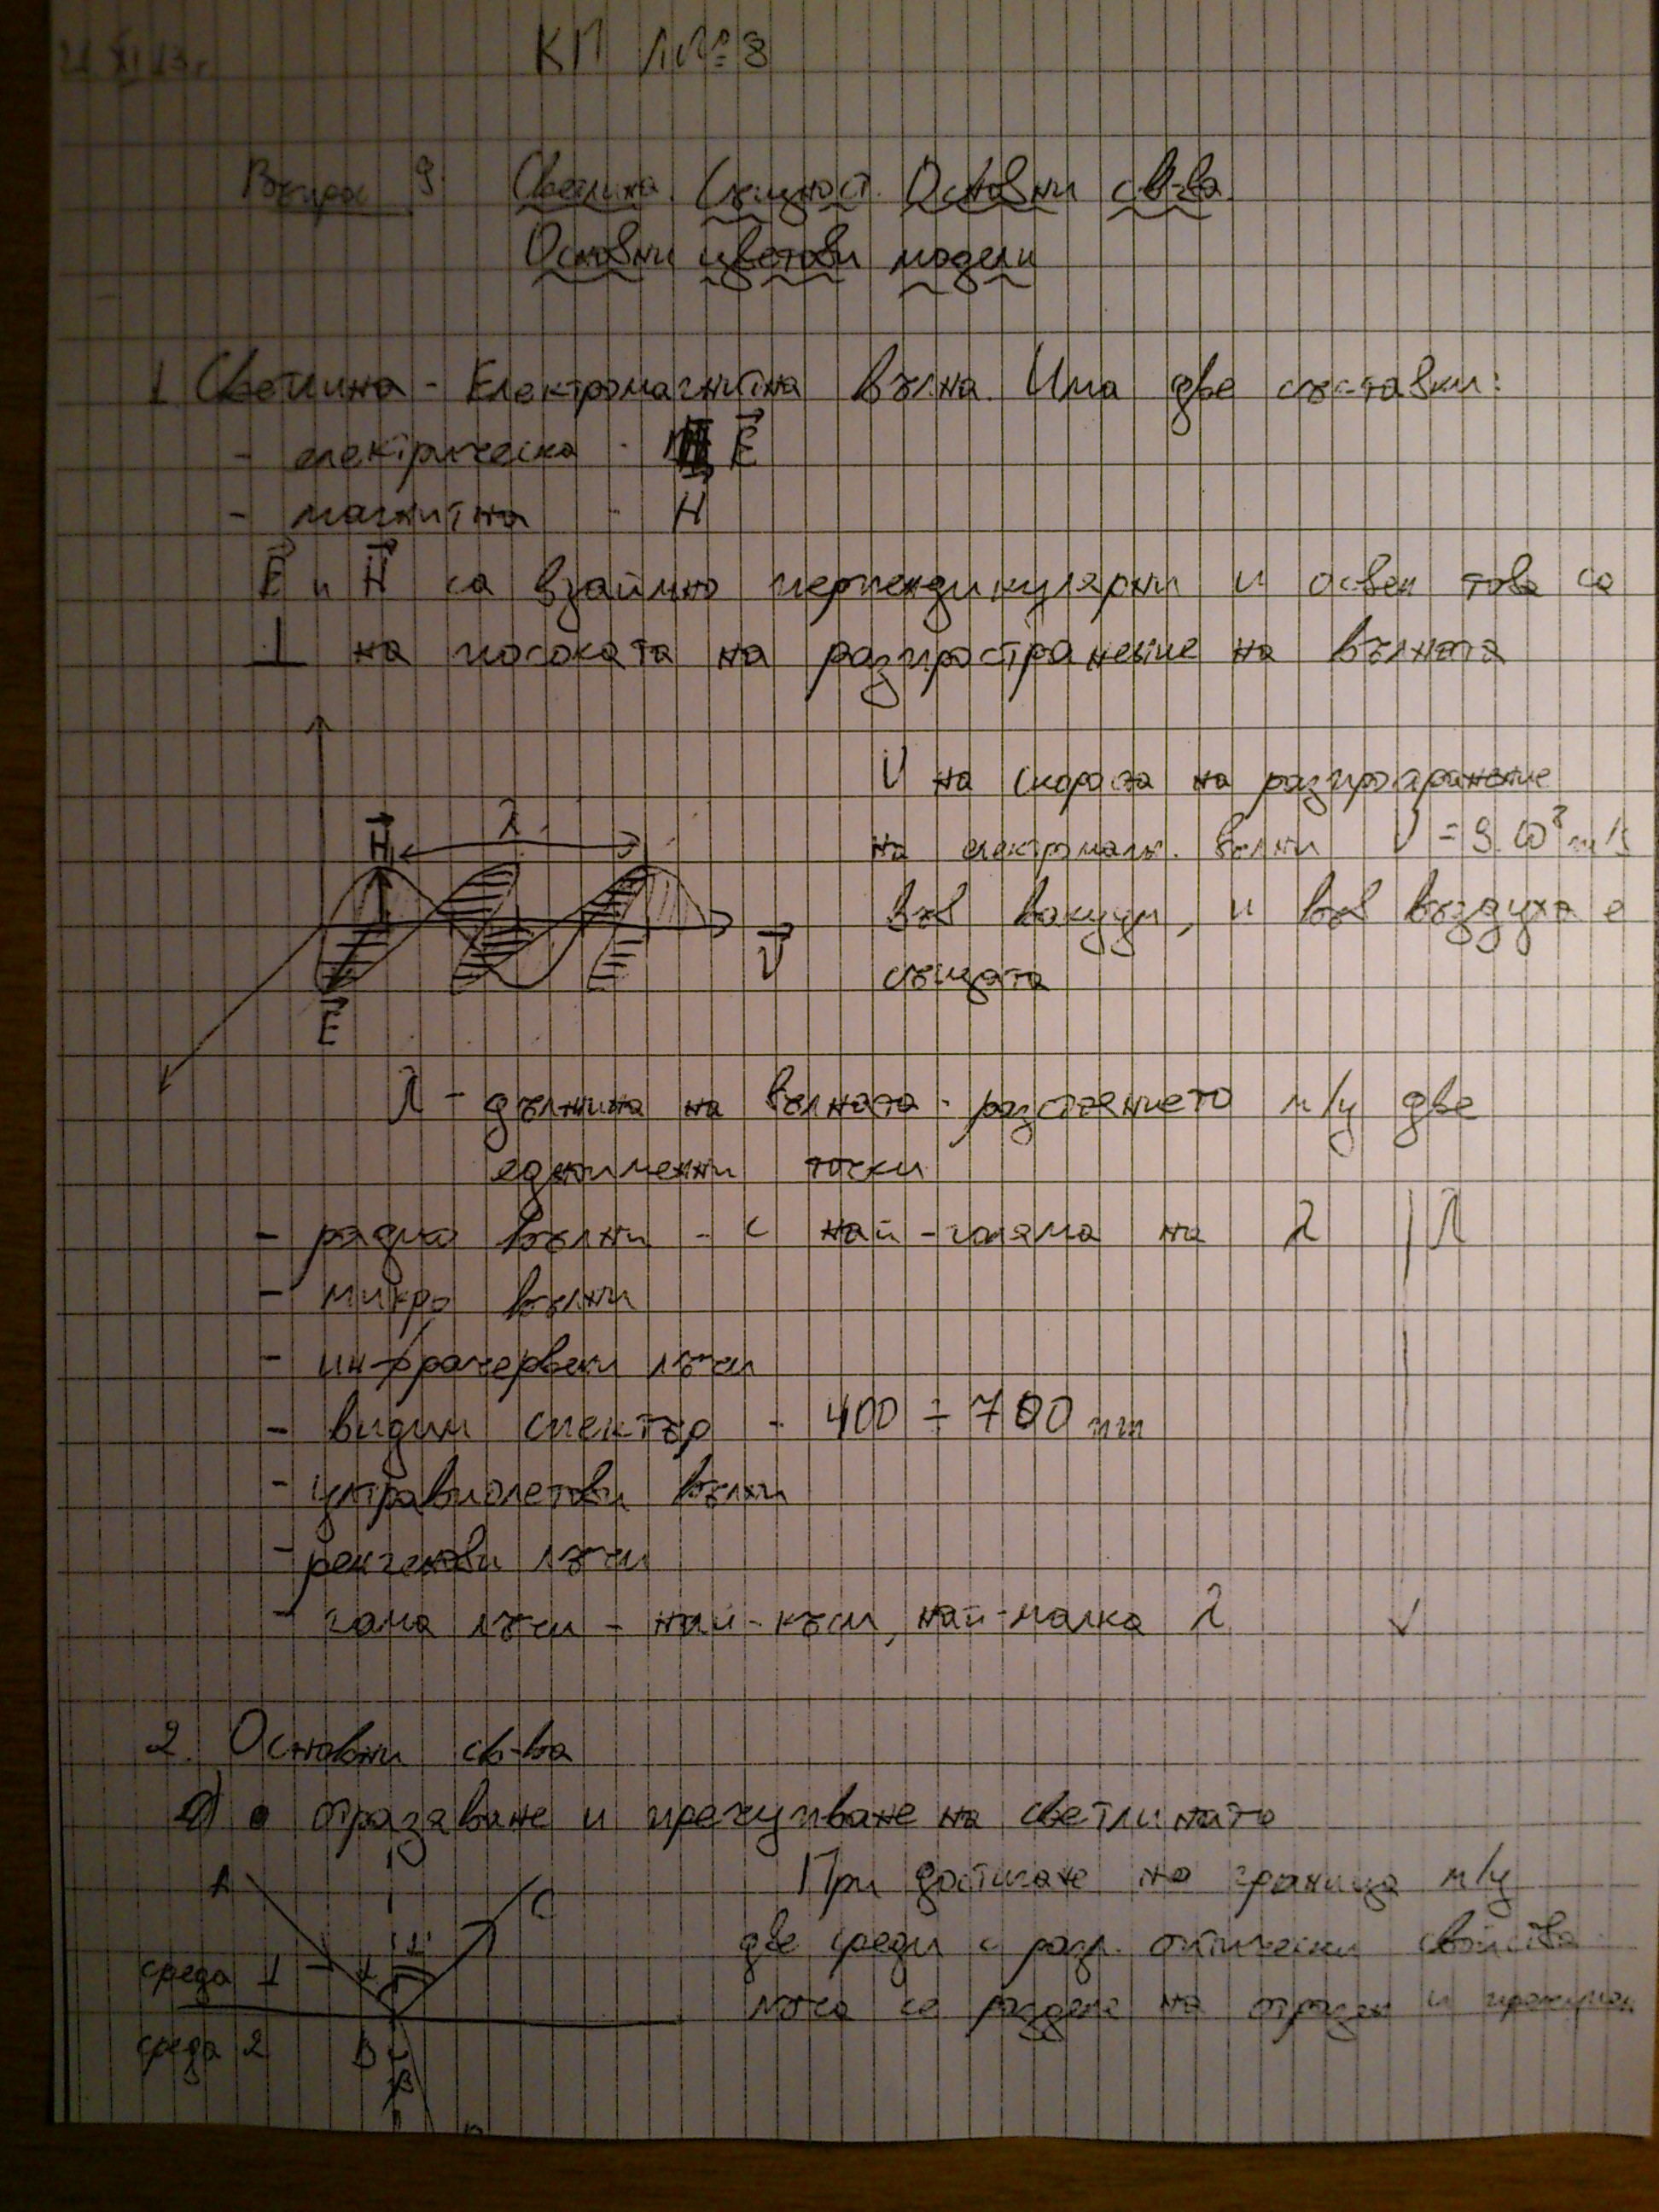 21 XI 13 г.
КП Л№ 8
Въпрос 9 Светлина. Същност. Основни св-ва.
Основни цветови модели
1 Светлина - Електромагнитна вълна. Има две съставки:
- електрическа - E
- магнитна - H
E и H са взаимно перпендикулярни и освен това са
⊥ на посоката на разпространение на вълната
V на скороста на разпространение
на електромагн. вълни V = 3.10⁸ m/s
във вакуум, и във въздуха е
същата
H λ
V
E
λ - дължина на вълната - разстоянието м/у две
едноименни точки
- радио вълни - с най-голяма на λ | λ
- микро вълни
- инфрачервени лъчи
- видим спектър - 400 ÷ 700 nm
- ултравиолетови вълни
- ренгенови лъчи
- гама лъчи - най-къси, най-малка λ
2. Основни св-ва
отразяване и пречупване на светлината
A C
При достигане на граница м/у
две среди с разл. оптически свойства
лъча се разделя на отразен и пречупен
среда 1
среда 2 B β